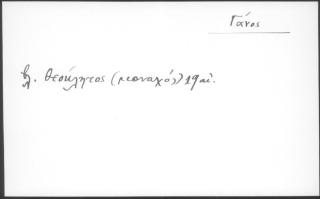 Γάνος
βλ. Θεόκλητος (μοναχός) 19 αἰ.